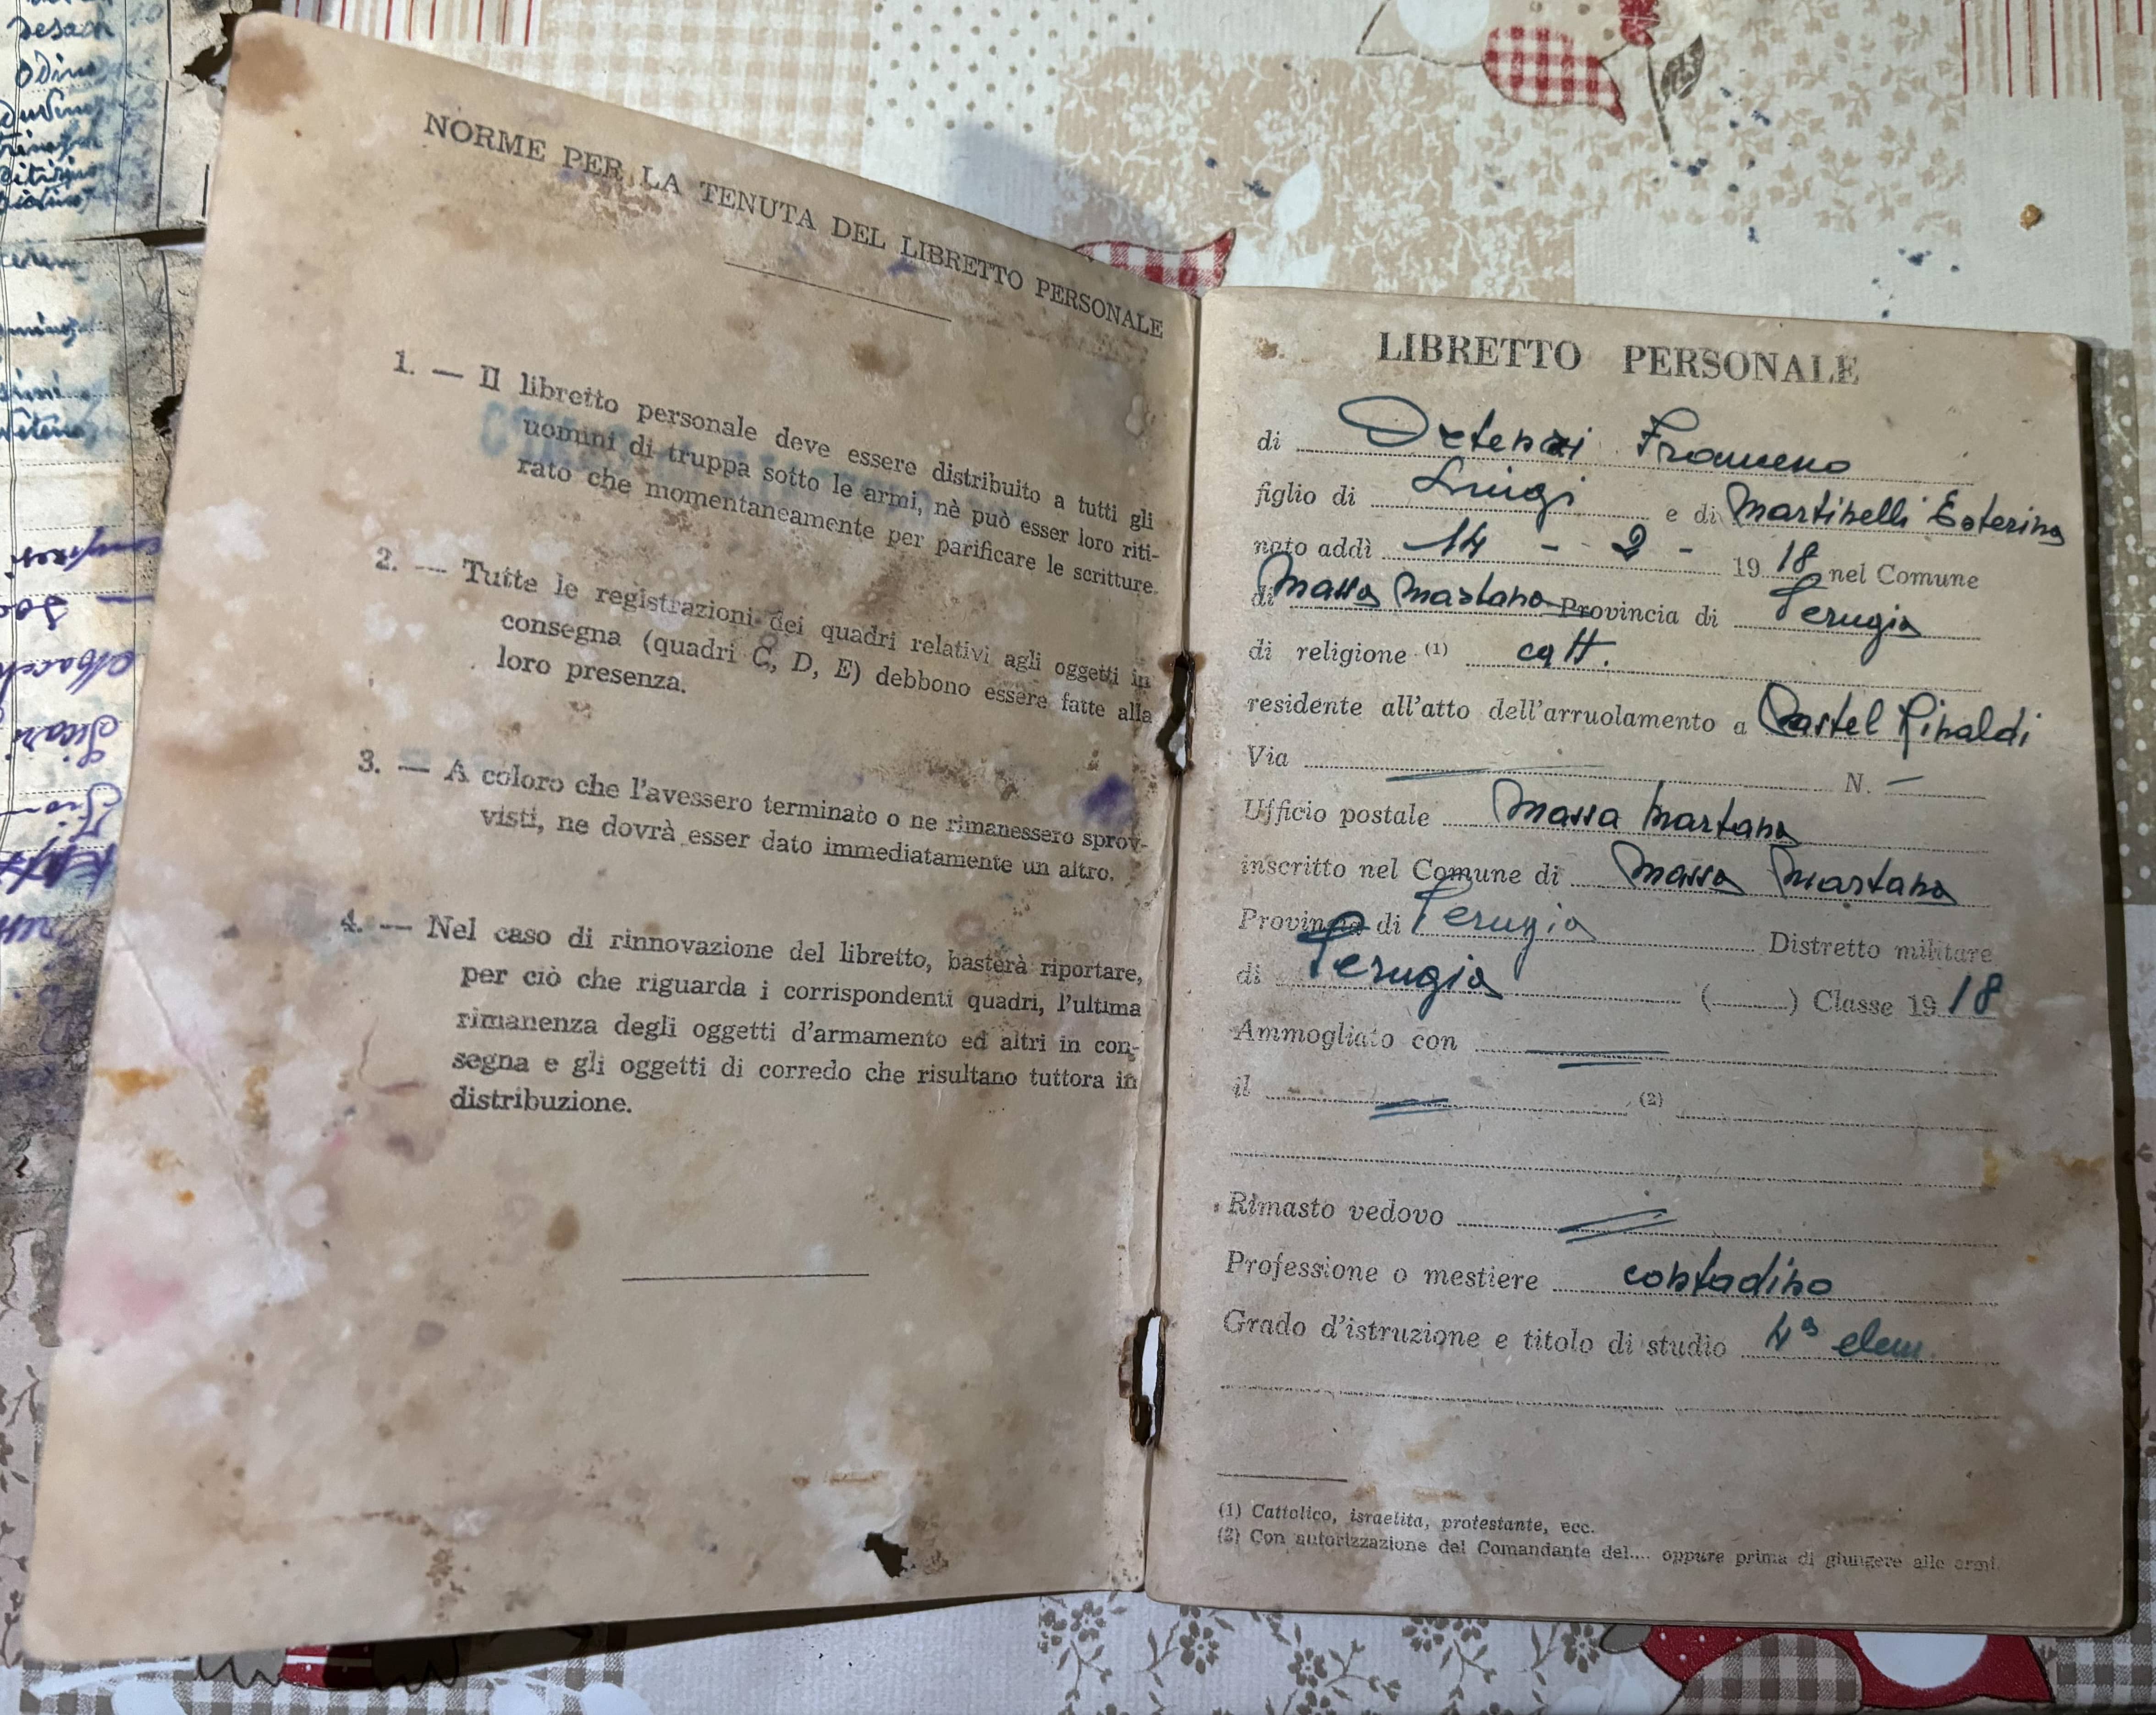 NORME PER LA TENUTA DEL LIBRETTO PERSONALE
1. — Il libretto personale deve essere distribuito a tutti gli
uomini di truppa sotto le armi, nè può esser loro riti-
rato che momentaneamente per parificare le scritture.
2. — Tutte le registrazioni dei quadri relativi agli oggetti in
consegna (quadri C, D, E) debbono essere fatte alla
loro presenza.
3. — A coloro che l'avessero terminato o ne rimanessero sprov-
visti, ne dovrà esser dato immediatamente un altro.
4. — Nel caso di rinnovazione del libretto, basterà riportare,
per ciò che riguarda i corrispondenti quadri, l'ultima
rimanenza degli oggetti d'armamento ed altri in con-
segna e gli oggetti di corredo che risultano tuttora in
distribuzione.
LIBRETTO PERSONALE
di
figlio di Luigi e di Martinelli Esterina
nato addì 14 - 2 - 1918 nel Comune
di Massa Martana Provincia di Perugia
di religione (1) catt.
residente all'atto dell'arruolamento a Castel Rinaldi
Via N. —
Ufficio postale Massa Martana
inscritto nel Comune di Massa Martana
Provincia di Perugia Distretto militare
di Perugia ( ) Classe 1918
Ammogliato con
il (2)
Rimasto vedovo
Professione o mestiere contadino
Grado d'istruzione e titolo di studio 4ª elem.
(1) Cattolico, israelita, protestante, ecc.
(2) Con autorizzazione del Comandante del.... oppure prima di giungere alle armi.